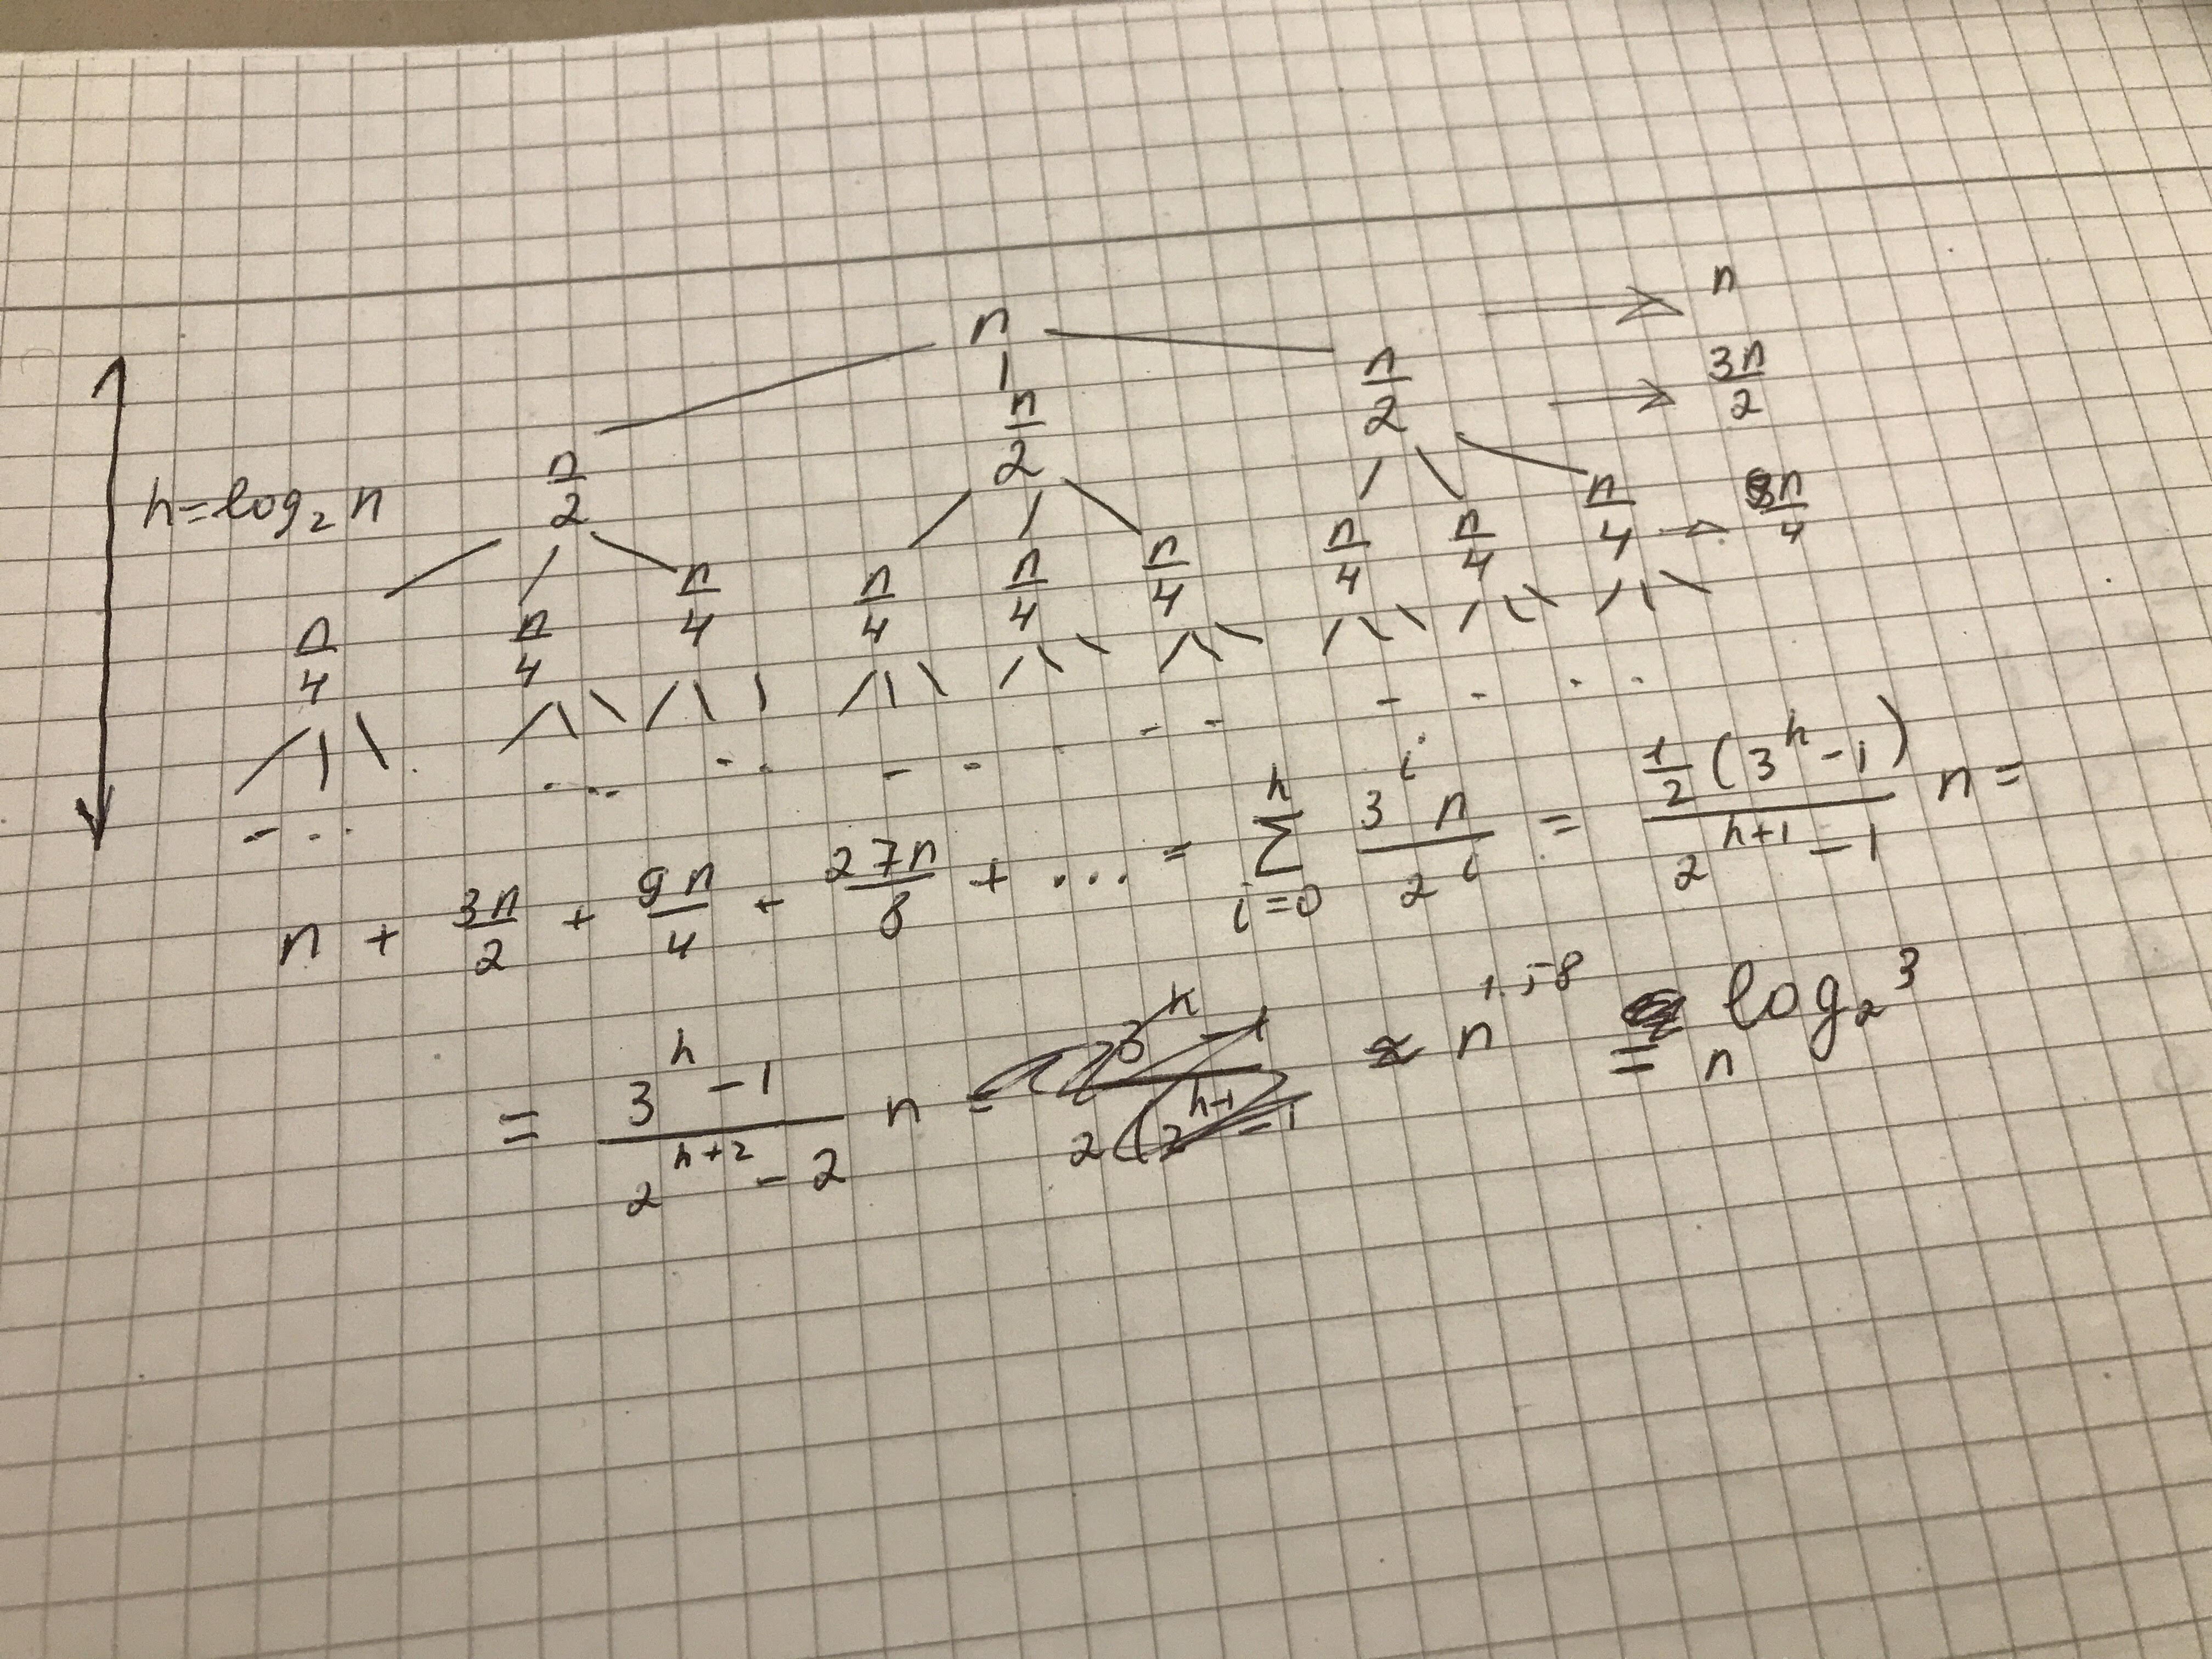 n → n
n/2 n/2 n/2 → 3n/2
h=log₂ n
n/4 n/4 n/4 n/4 n/4 n/4 n/4 n/4 n/4 → 9n/4
... .. -- -- - - . .
n + 3n/2 + 9n/4 + 27n/8 + ... = Σ_{i=0}^{h} 3^i n / 2^i = ½(3^h - 1) / (2^{h+1} - 1) n =
= (3^h - 1) / (2^{h+2} - 2) n = ≈ n^{1.58} = n^{log₂ 3}